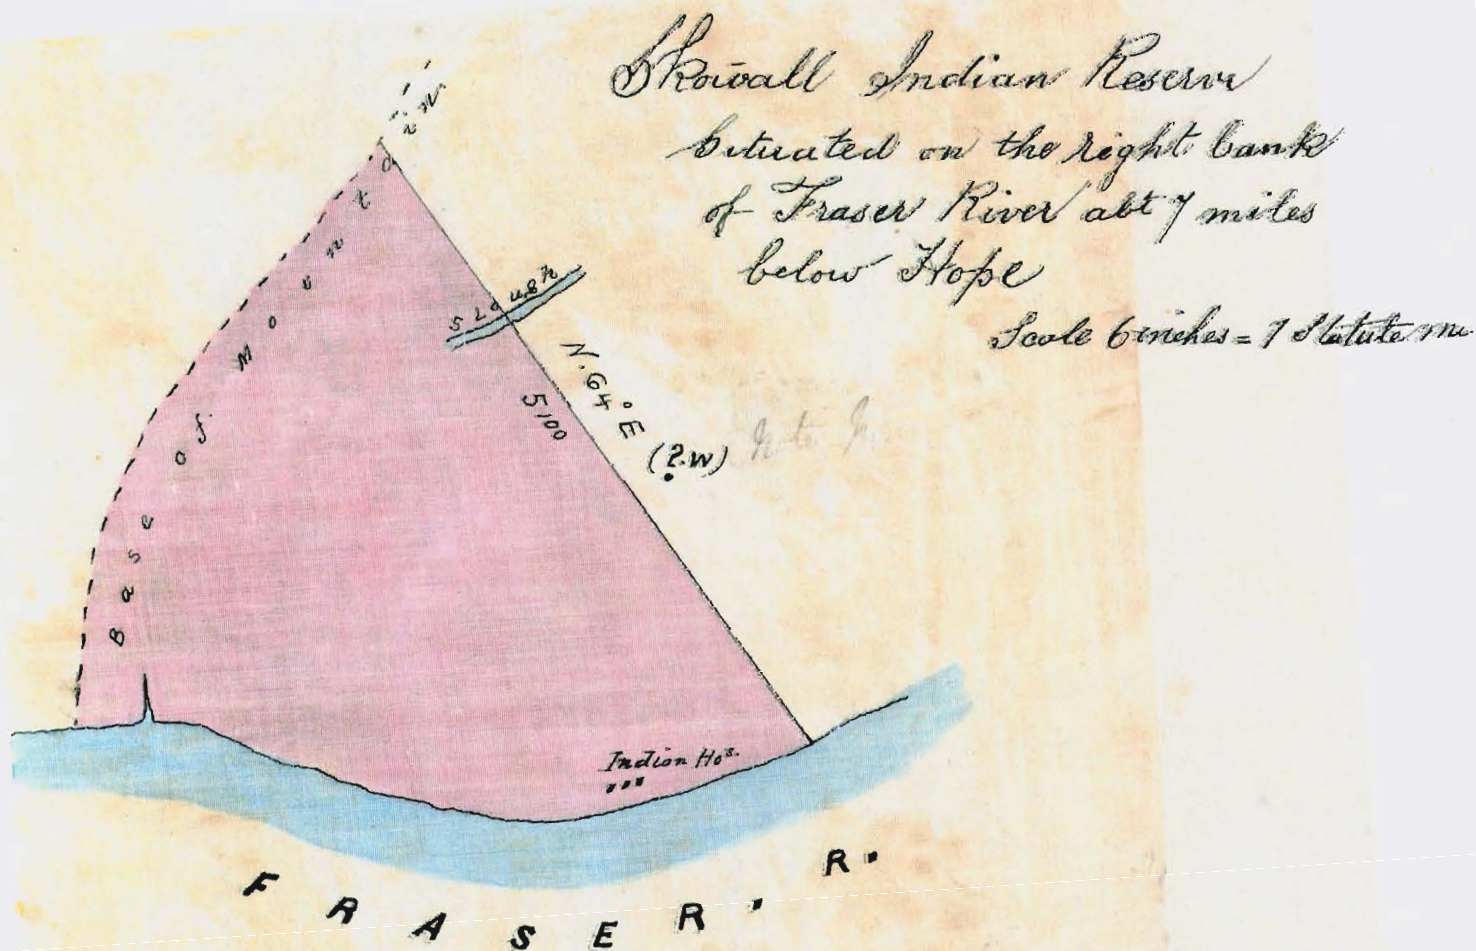 Skowall Indian Reserve
Situated on the right bank
of Fraser River abt 7 miles
below Hope
Scale 6 inches = 1 Statute mi
Base of Mountain
Slough
N. 64° E
(?. W)
5100
Indian Hos.
FRASER. R.